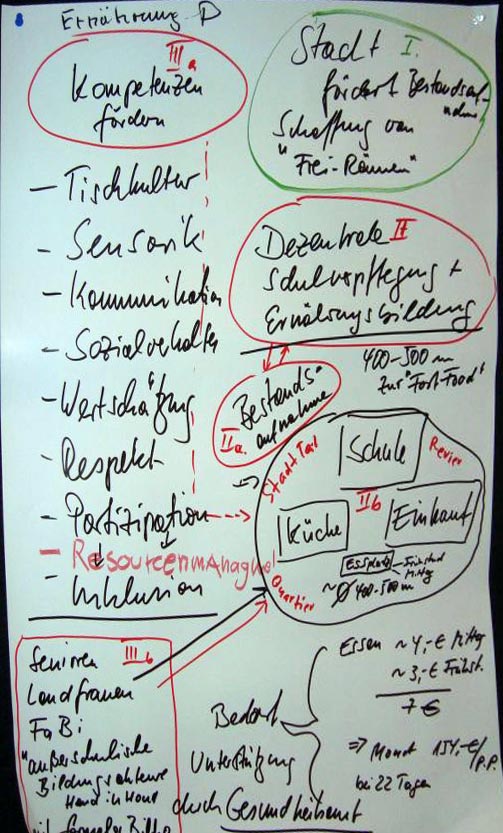 Ernährung
IIIa
Kompetenzen
fördern
- Tischkultur
- Sensorik
- Kommunikation
- Sozialverhalten
- Wertschätzung
- Respekt
- Partizipation
- Ressourcenmanagmet
- Inklusion
IIIb
Senioren
Landfrauen
FaBi
"außerschulische
Bildungsakteure
Hand in Hand
Stadt I.
fördert Bestandsauf-
nahme
Schaffung von
"Frei-Räumen"
Dezentrale II
Schulverpflegung +
Ernährungsbildung
400-500 m
zur "Fast-Food"
Bestands-
IIa. aufnahme
Stadtteil
Schule
Revier
IIb
Küche
Einkauf
Essplatz
Frühstück
Mittag
~Ø 400-500 m
Quartier
Bedarf
Unterstützung
durch Gesundheitsamt
Essen ~4,-€ Mittag
~3,-€ Frühst.
7 €
=> Monat 154,-€/
p.P.
bei 22 Tagen